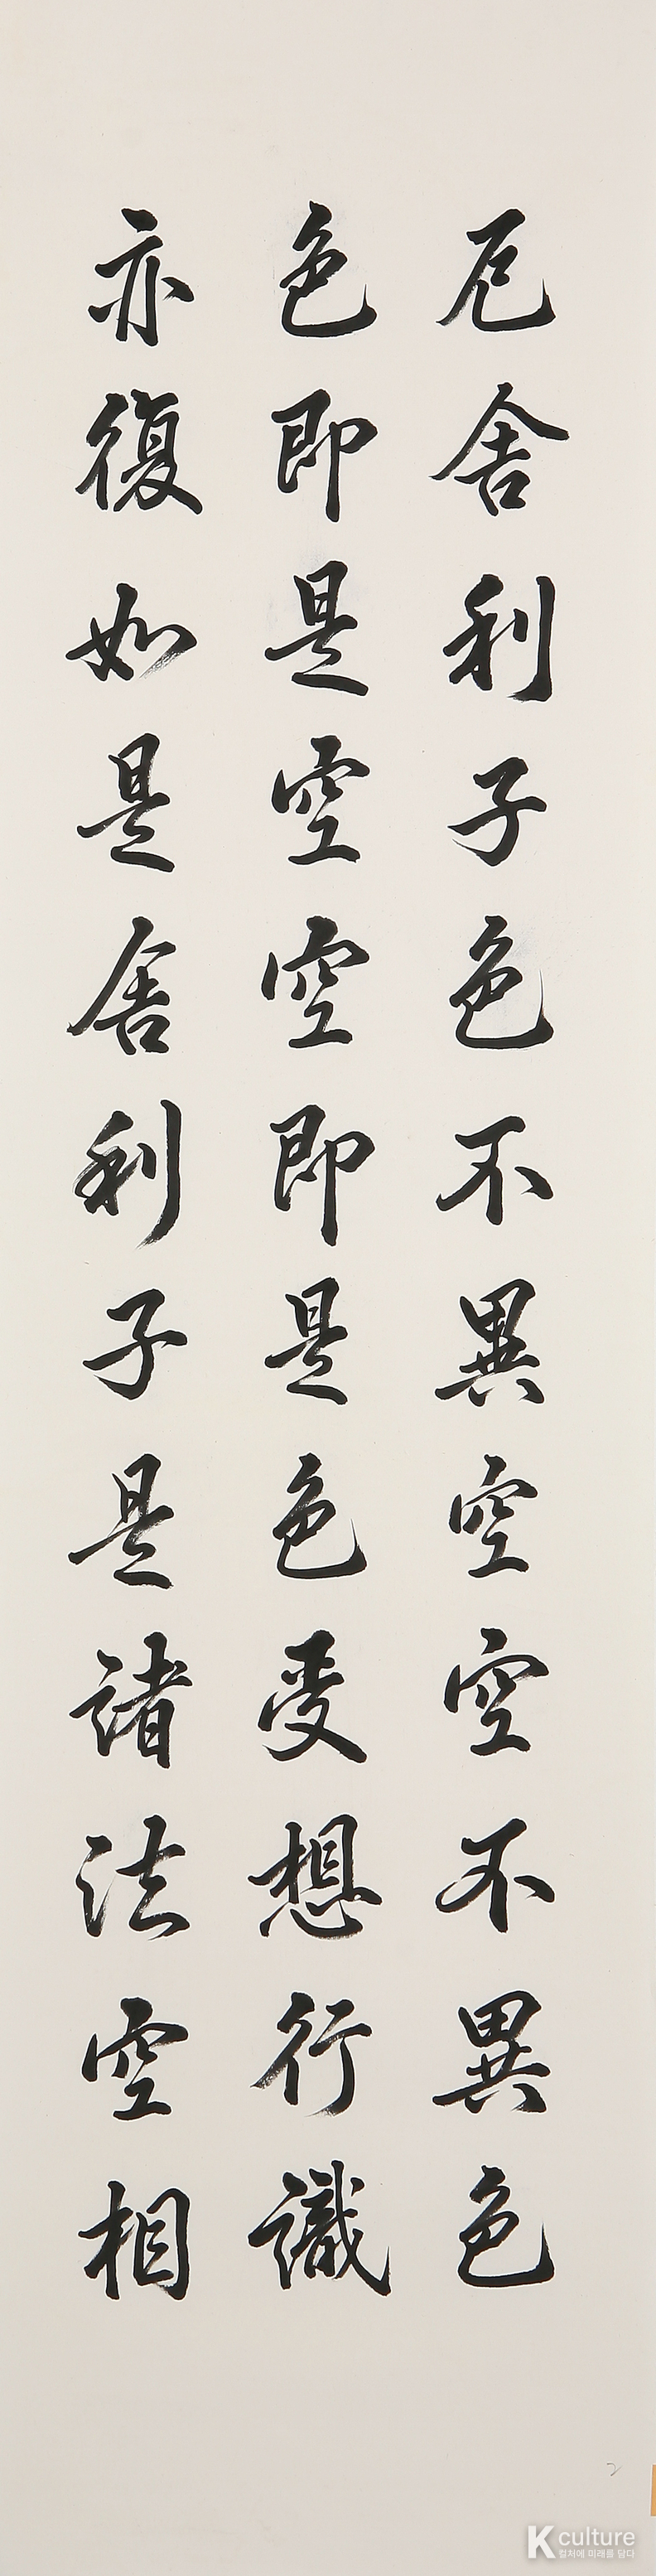 厄舍利子色不異空空不異色
色即是空空即是色受想行識
亦復如是舍利子是諸法空相
2
K culture
컬처에 미래를 담다